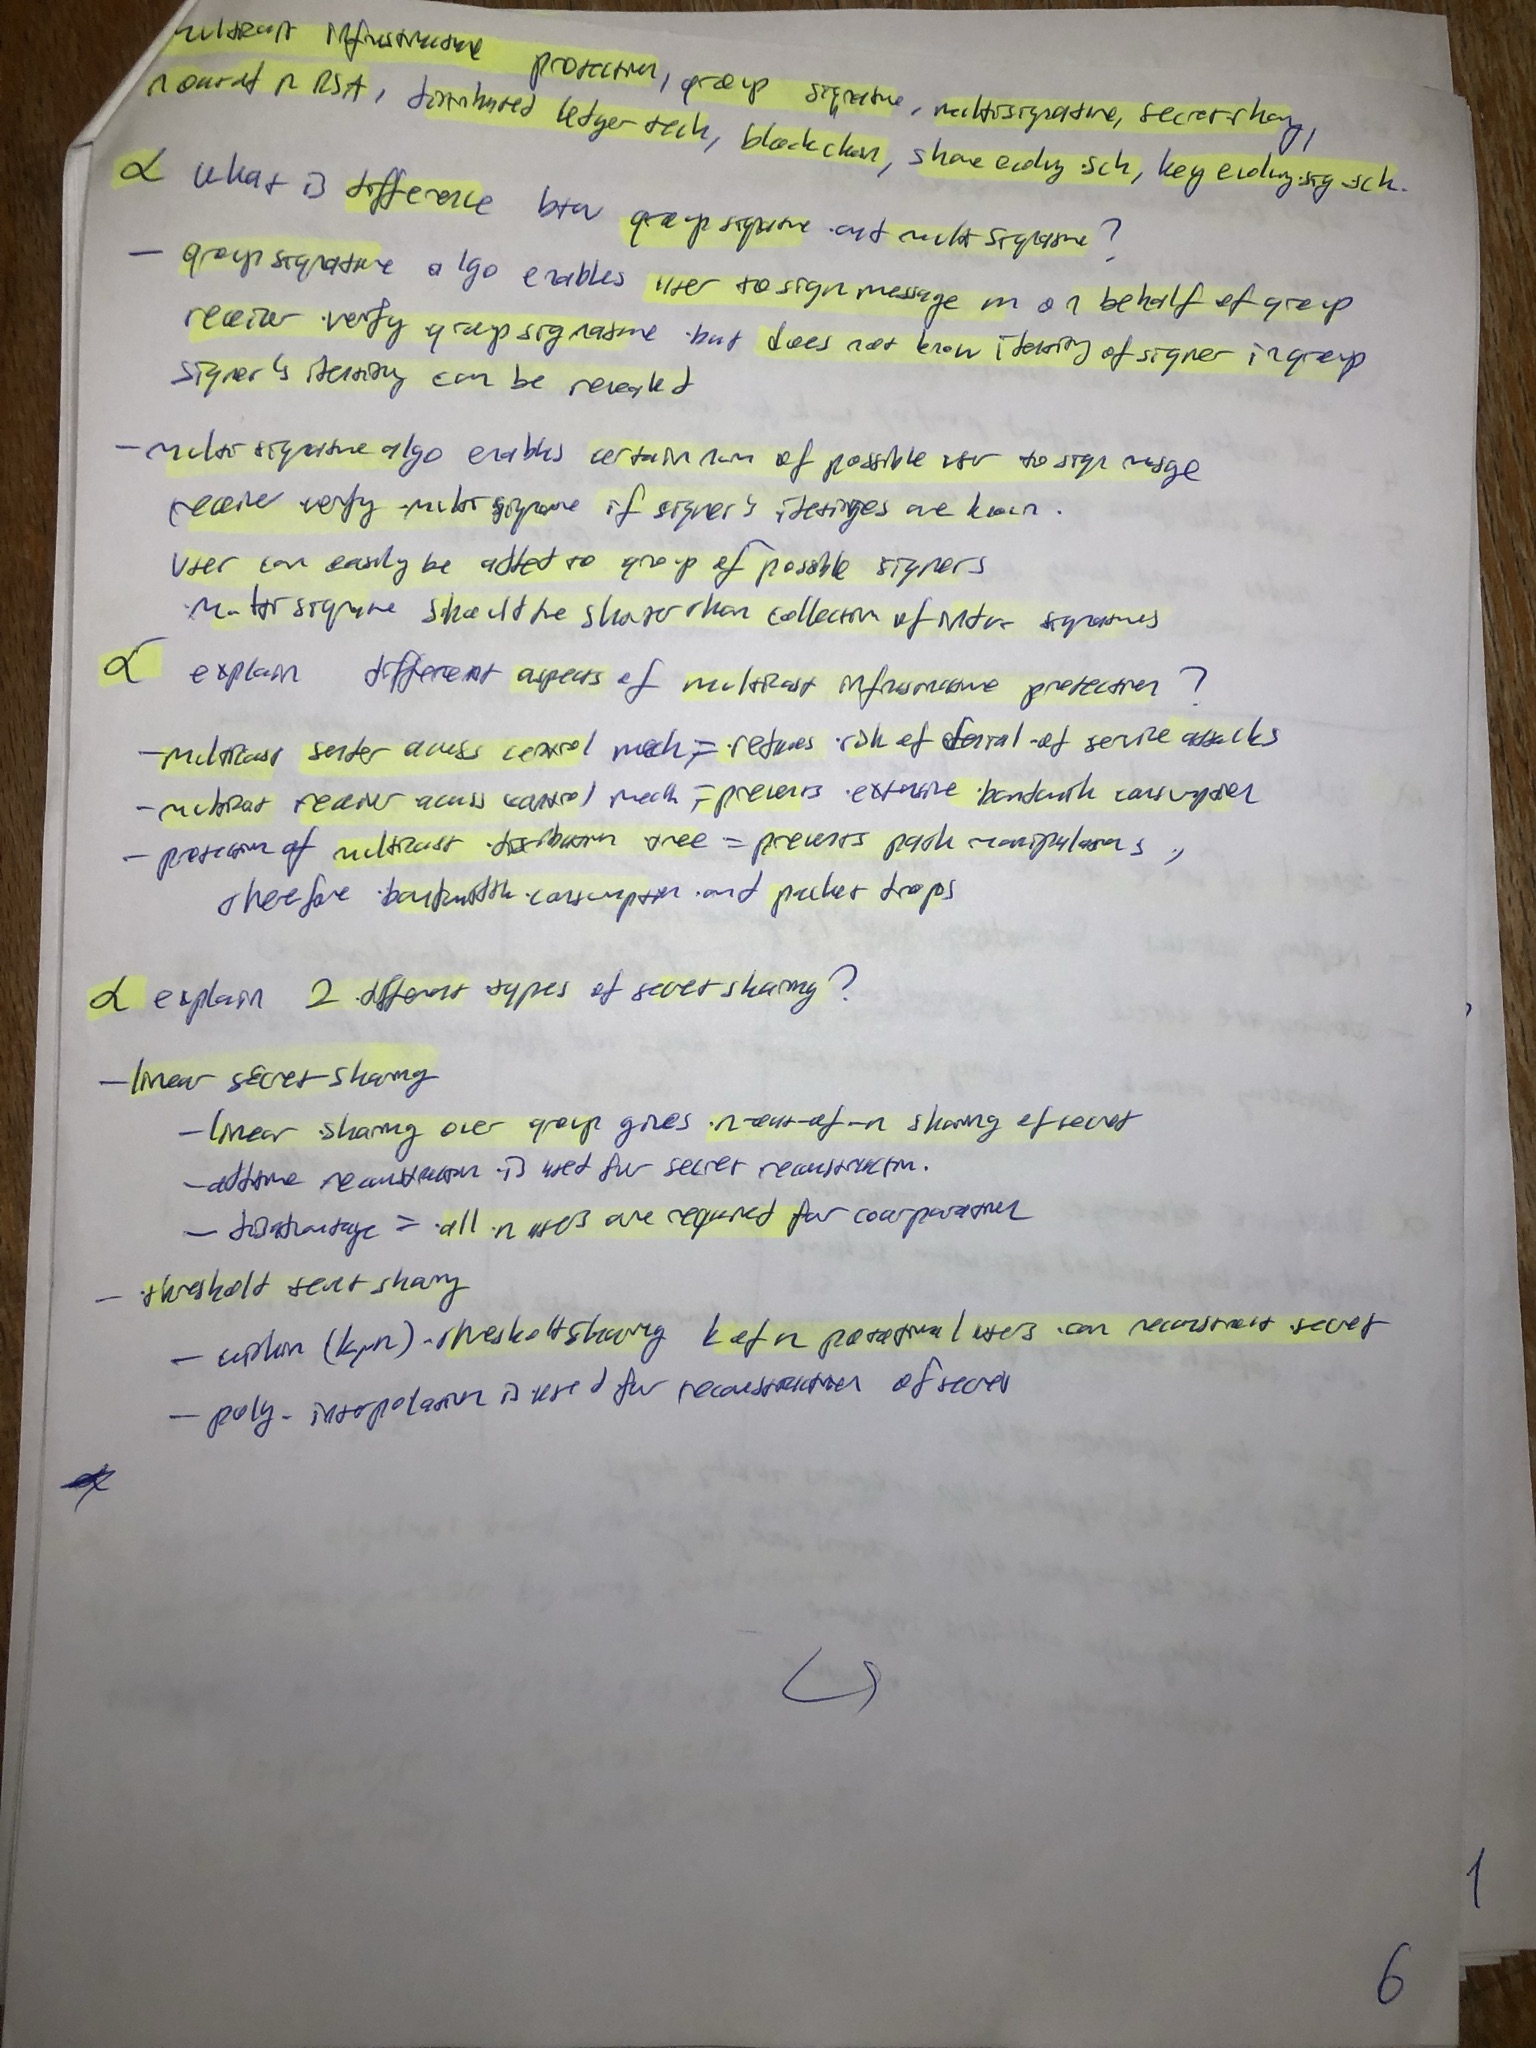 multicast infrastructure protection, group signature, multisignature, secret sharing,
n out of n RSA, distributed ledger tech, blockchain, share evolving sch, key evolving sig sch.
α what is difference btw group signature and multi signature?
- group signature algo enables user to sign message on behalf of group
receiver verify group signature but does not know identity of signer in group
signer's identity can be revealed
- multi signature algo enables certain num of possible user to sign msge
receiver verify multi signature if signer's identities are known.
User can easily be added to group of possible signers
multi signature should be shorter than collection of indiv signatures
α explain different aspects of multicast infrastructure protection?
- multicast sender access control mech = reduces risk of denial of service attacks
- multicast receiver access control mech = prevents extensive bandwidth consumption
- protection of multicast distribution tree = prevents path manipulations,
therefore bandwidth consumption and packet drops
α explain 2 different types of secret sharing?
- linear secret sharing
- linear sharing over group gives n-out-of-n sharing of secret
- additive reconstruction is used for secret reconstruction.
- disadvantage = all n users are required for cooperation
- threshold secret sharing
- within (k,n) threshold sharing k of n potential users can reconstruct secret
- poly- interpolation is used for reconstruction of secret
1
6